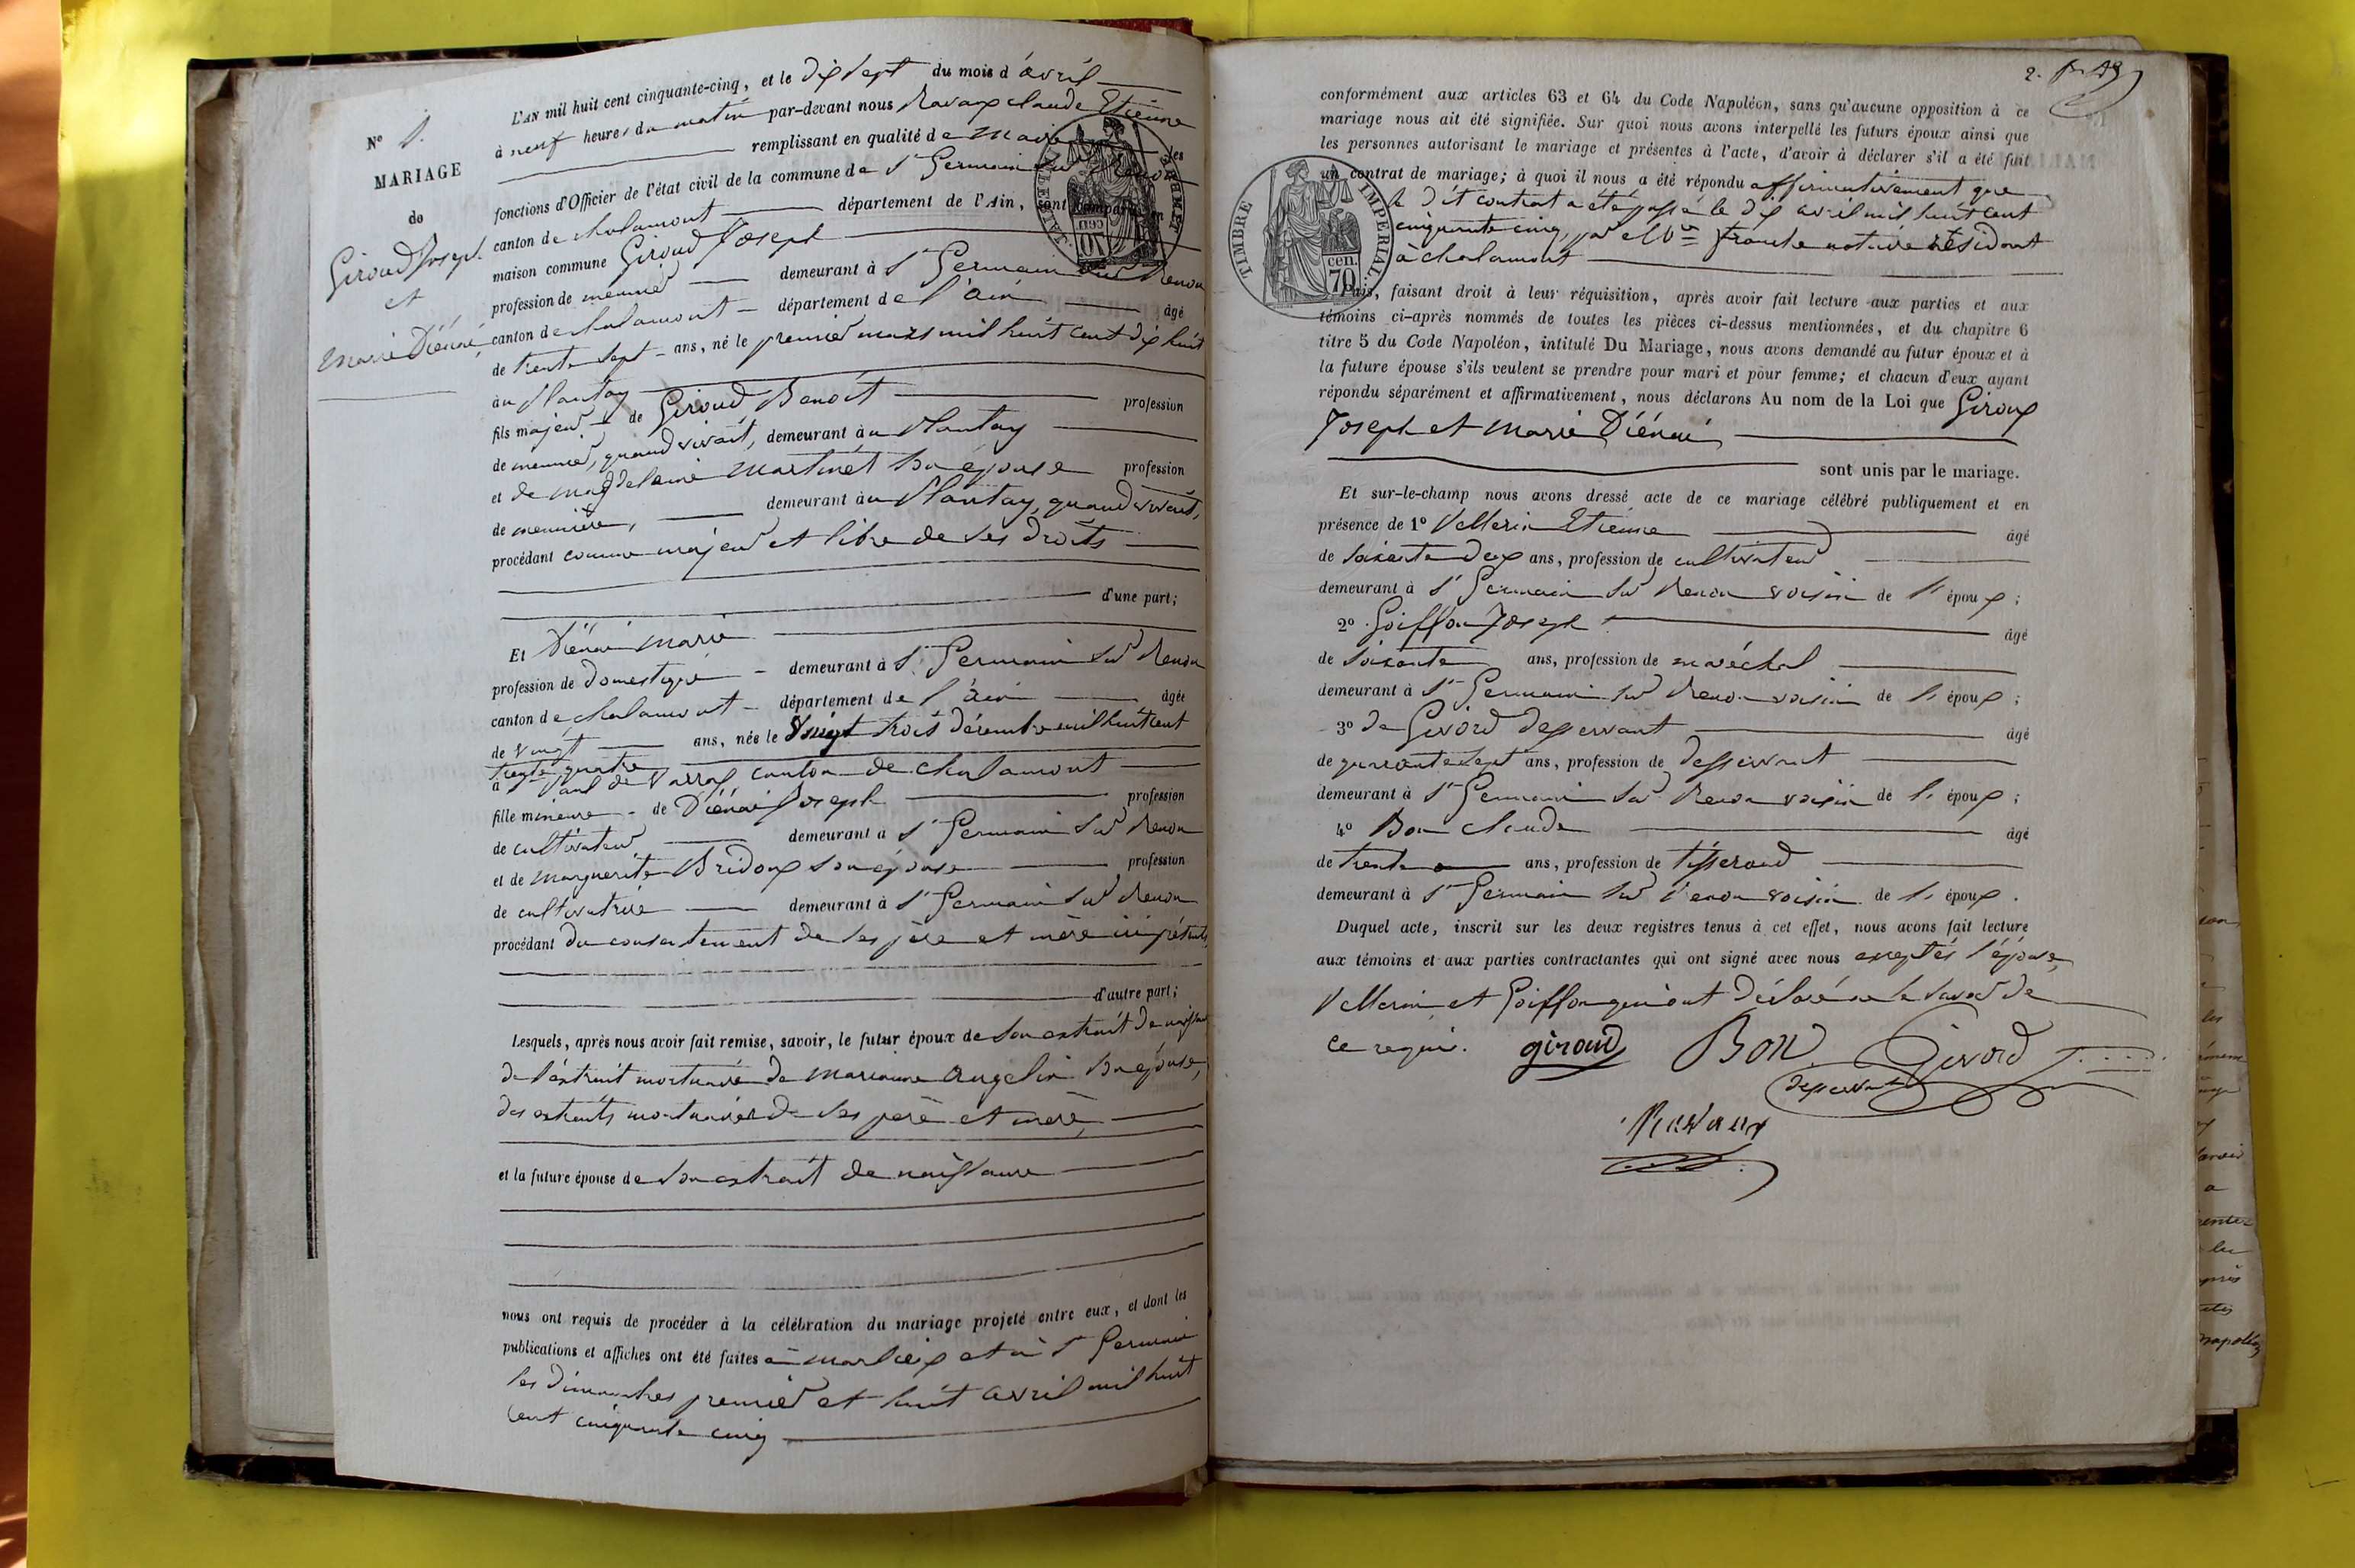 N° 1.
MARIAGE
de
Giroud Joseph
et
Marie Diénai
L'AN mil huit cent cinquante-cinq, et le dix sept du mois d'avril
à neuf heures du matin par-devant nous Ravaux claude Etienne
remplissant en qualité de Maire les
fonctions d'Officier de l'état civil de la commune de St Germain sur Renon
canton de chalamont département de l'Ain, sont comparus en
maison commune Giroud Joseph
profession de meunier demeurant à St Germain sur Renon
canton de chalamont département de l'ain âgé
de trente sept ans, né le premier mars mil huit cent dix huit
au Plantay
fils majeur de Giroud Benoit profession
de meunier, quand vivait, demeurant au Plantay
et de magdelaine Martinet son épouse profession
de meunière, demeurant au Plantay, quand vivait,
procédant comme majeur et libre de ses droits
d'une part;
Et Diénai marie
profession de domestique demeurant à St Germain sur Renon
canton de chalamont département de l'ain âgée
de vingt ans, née le vingt trois décembre mil huit cent
trente quatre
à St Paul de Varax canton de chalamont
fille mineure de Diénai Joseph profession
de cultivateur demeurant à St Germain sur Renon
et de marguerite Bridoux son épouse profession
de cultivatrice demeurant à St Germain sur Renon
procédant du consentement de ses père et mère
d'autre part;
Lesquels, après nous avoir fait remise, savoir, le futur époux de son extrait de naissance
de l'extrait mortuaire de marianne Angelin son épouse,
des extraits mortuaires de ses père et mère,
et la future épouse de son extrait de naissance
nous ont requis de procéder à la célébration du mariage projeté entre eux, et dont les
publications et affiches ont été faites à marlieux et à St Germain
les dimanches premier et huit avril mil huit
cent cinquante cinq
2.
conformément aux articles 63 et 64 du Code Napoléon, sans qu'aucune opposition à ce
mariage nous ait été signifiée. Sur quoi nous avons interpellé les futurs époux ainsi que
les personnes autorisant le mariage et présentes à l'acte, d'avoir à déclarer s'il a été fait
un contrat de mariage; à quoi il nous a été répondu affirmativement que
le dit contrat a été passé le dix avril mil huit cent
cinquante cinq, par notaire résidant
à chalamont
TIMBRE IMPERIAL.
70 cen.
Puis, faisant droit à leur réquisition, après avoir fait lecture aux parties et aux
témoins ci-après nommés de toutes les pièces ci-dessus mentionnées, et du chapitre 6
titre 5 du Code Napoléon, intitulé Du Mariage, nous avons demandé au futur époux et à
la future épouse s'ils veulent se prendre pour mari et pour femme; et chacun d'eux ayant
répondu séparément et affirmativement, nous déclarons Au nom de la Loi que Giroux
Joseph et Marie Diénai
sont unis par le mariage.
Et sur-le-champ nous avons dressé acte de ce mariage célébré publiquement et en
présence de 1° Vellerin Etienne âgé
de soixante deux ans, profession de cultivateur
demeurant à St Germain sur Renon voisin de l' époux;
2° Goiffon Joseph âgé
de soixante ans, profession de maréchal
demeurant à St Germain sur Renon voisin de l' époux;
3° de Givord desservant âgé
de quarante sept ans, profession de desservant
demeurant à St Germain sur Renon voisin de l' époux;
4° Bon claude âgé
de trente ans, profession de tisserand
demeurant à St Germain sur Renon voisin de l' époux.
Duquel acte, inscrit sur les deux registres tenus à cet effet, nous avons fait lecture
aux témoins et aux parties contractantes qui ont signé avec nous exceptés l'épouse,
Vellerin et Goiffon qui ont déclaré ne le savoir de
ce requis. giroud Bon Givord
desservant
Ravaux